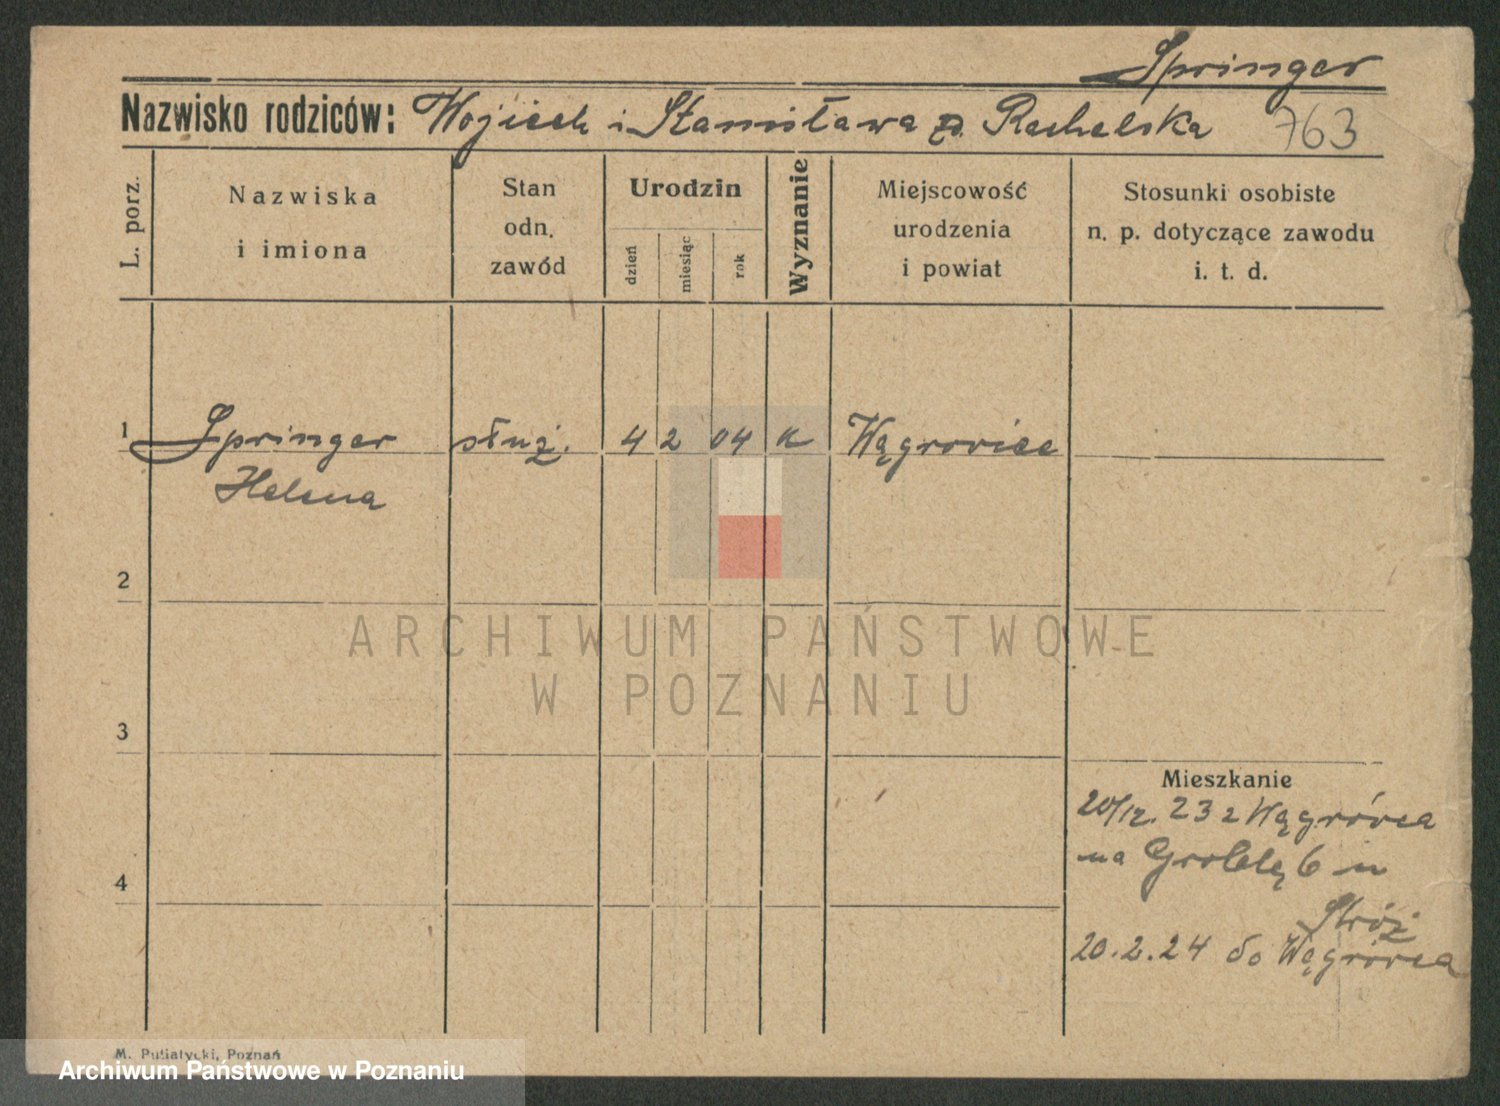 Springer
Nazwisko rodziców: Wojciech i Stanisława z. Rachelska 763
L. porz.
Nazwiska
i imiona
Stan
odn.
zawód
Urodzin
dzień
miesiąc
rok
Wyznanie
Miejscowość
urodzenia
i powiat
Stosunki osobiste
n. p. dotyczące zawodu
i. t. d.
1 Springer służ. 4 2 04 K Wągrowiec
Helena
2
ARCHIWUM PAŃSTWOWE
W POZNANIU
3
Mieszkanie
20/12. 23 z Wągrówca
na Groblę 6 u
4
Stróż
20.2.24 do Wągrówca
M. Putiatycki, Poznań
Archiwum Państwowe w Poznaniu